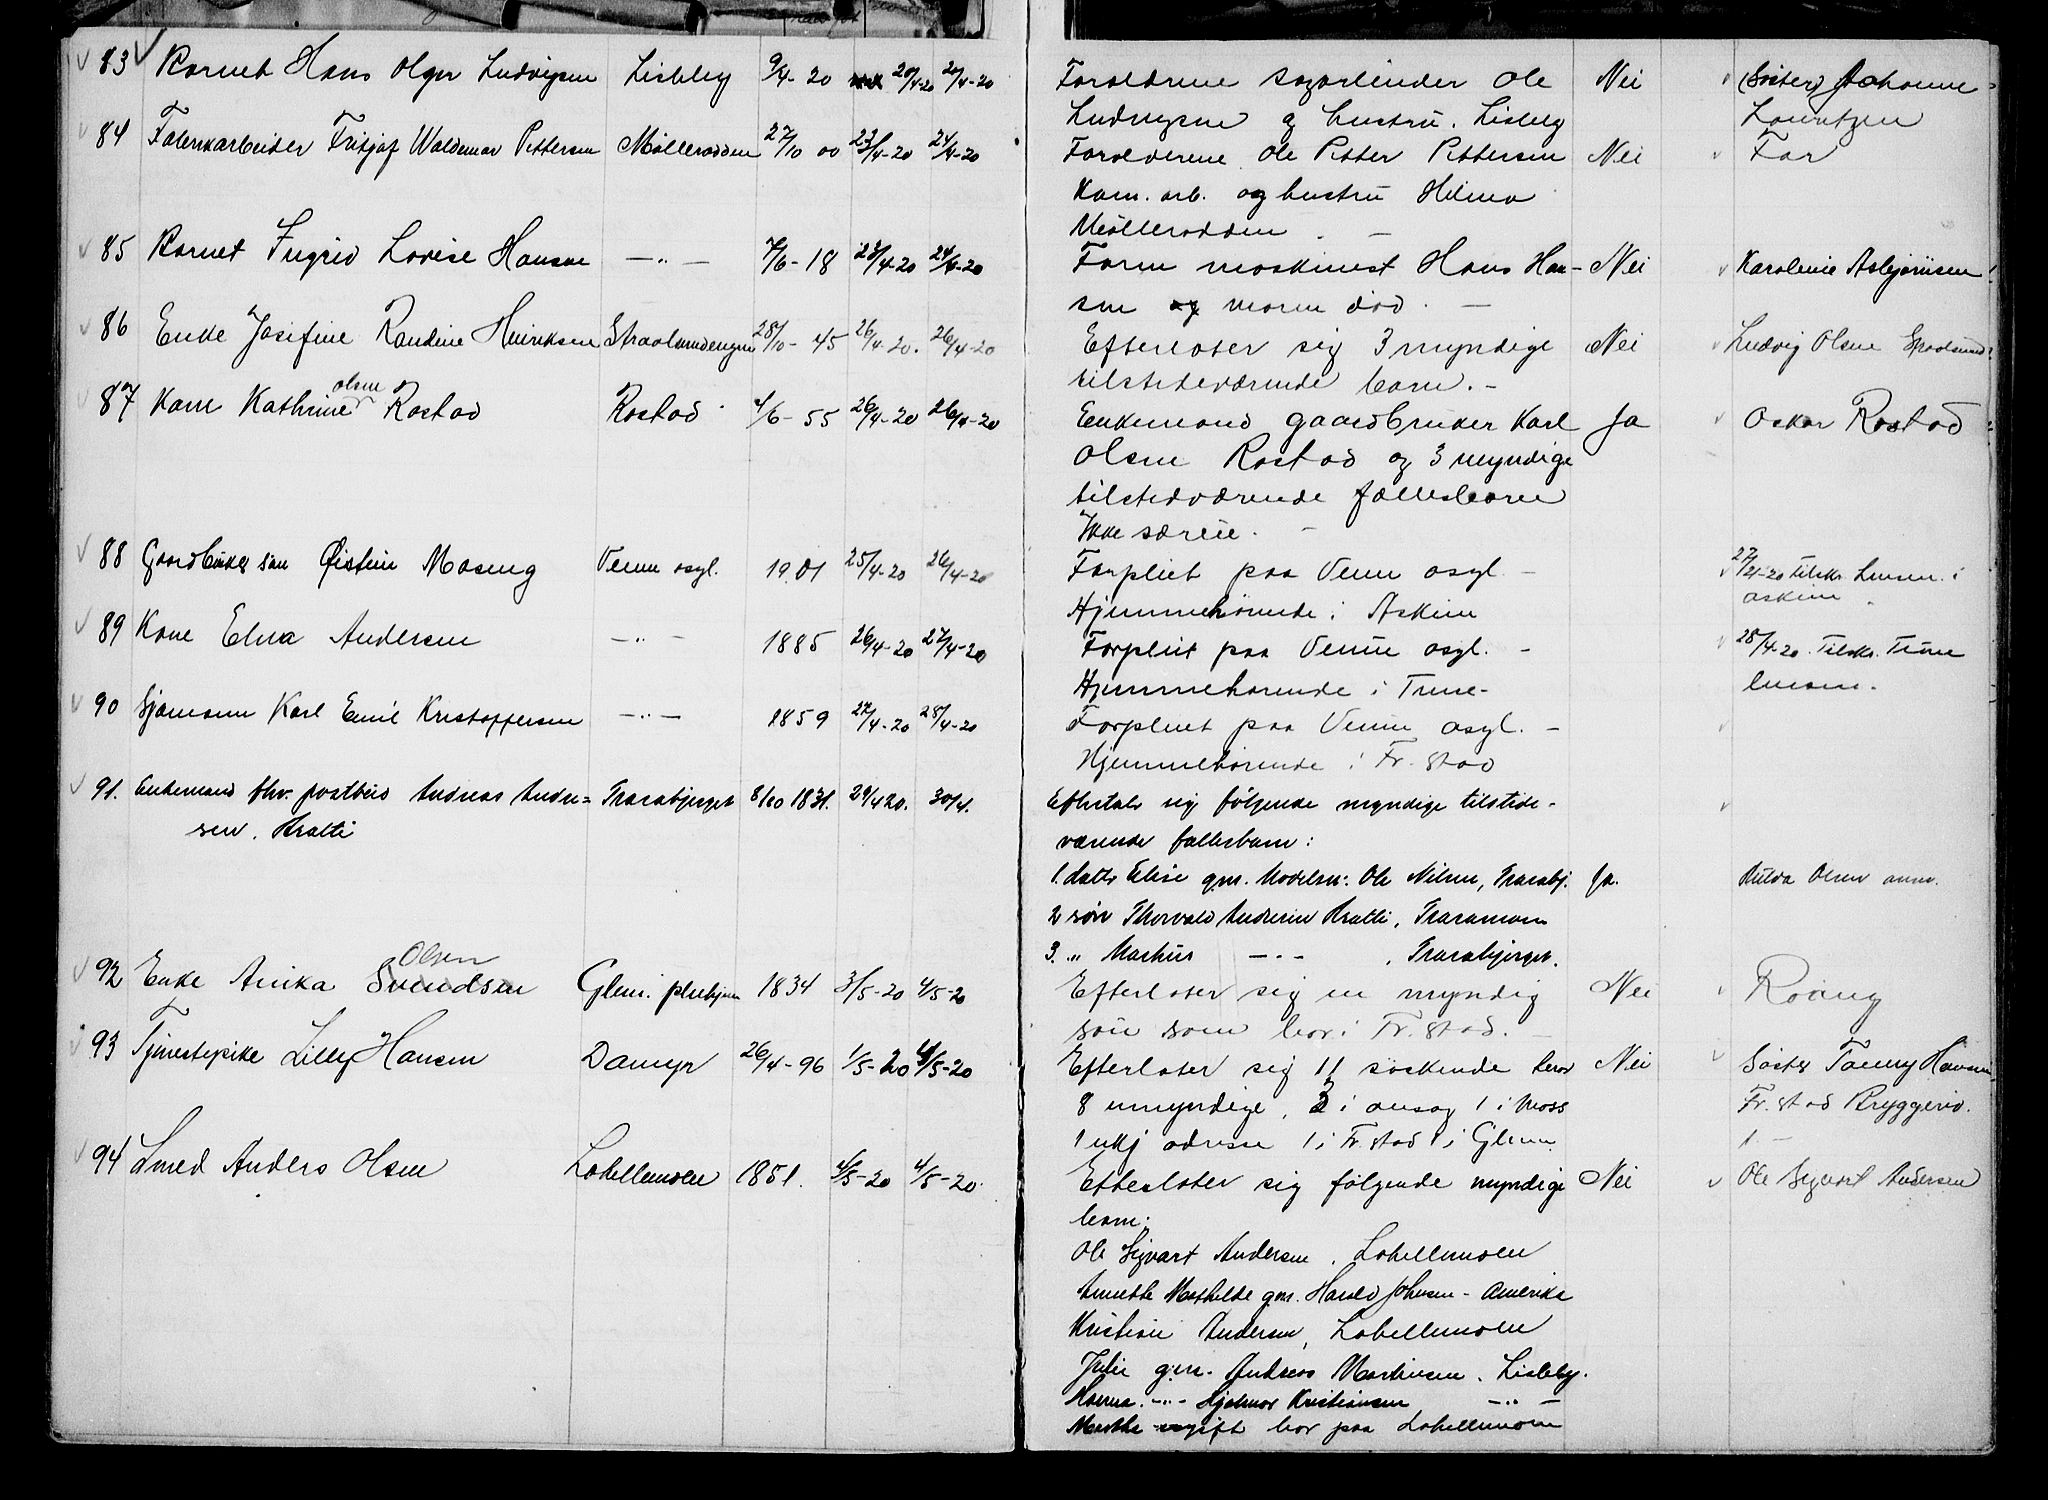 83 Barnet Hans Olger Ludvigsen Lisleby 9/4-20 20/4-20 21/4-20 Forældrene sagarbeider Ole Nei (Søster) Johanne
Ludvigsen og hustru. Lisleby Lauritzen
84 Fabrikarbeider Fritjof Waldemar Pettersen Møllerodden 27/10 00 23/4-20 24/4-20 Forælderene Ole Petter Pettersen Nei Far
Kom. arb. og hustru Hilma
Møllerodden. —
85 Barnet Ingrid Lovise Hansen —"— 7/6-18 23/4-20 24/4-20 Faren maskinist Hans Han- Nei Karolinie Asbjørnsen
sen og moren død. —
86 Enke Josefine Randine Henriksen 28/10-45 26/4-20. 26/4-20 Efterlater sig 3 myndige Nei Ludvig Olsen
tilstedeværende barn. -
olsen
87 Kone Kathrine Rostad Rostad 4/6-55 26/4-20 26/4-20 Enkemand gaardbruker Karl Ja Oskar Rostad
Olsen Rostad og 3 myndige
tilstedværende fællesbarn
Ikke særeie. -
88 Gaardbruker søn Øistein Moseng Venn asyl. 1901 25/4-20 26/4-20 Forpleiet paa Venn asyl - 27/4-20 tilskr. Lensm. i
Hjemmehørende i Askim askim
89 Kone Elna Andersen —"— 1885 26/4-20 27/4-20 Forpleiet paa Venn asyl. - 28/4-20. Tilskr. Tune
Hjemmehørende i Tune- lensm.
90 Sjømann Karl Emil Kristoffersen —"— 1859 27/4-20 28/4-20 Forpleiet paa Venn asyl. -
Hjemmehørende i Fr.stad
91. Enkemand fhv. postbud Andreas Andre= Trarabjerget 8/10 1831. 29/4 20. 30/4. Efterlater sig følgende myndige tilstede-
sen. Bratli værende fællesbarn:
1. datter Elise gm. Ole Nilsen, Trarabj. Ja. Hulda Olsen anm.
2 søn Thorvald Andersen Bratli, Traramoen
3. " Markus —"— , Trarabjerget.
Olsen
92 Enke Anika Svendsen Glem. pleiehjem 1834 3/5-20 4/5-20 Efterlater sig en myndig Nei
søn som bor i Fr.stad. —
93 Tjenestepike Lilly Hansen Damyr 26/4-96 1/5-20 4/5-20 Efterlater sig 11 søskende herav Nei Søster Fanny Hansen
8 umyndige, 2 i ansog 1 i Moss Fr.stad Bryggeri.
1 ukj adresse 1 i Fr.stad 1 i Glem. 1 —
94 Smed Anders Olsen Labellemoen 1851. 4/5-20 4/5-20. Efterlater sig følgende myndige Nei Ole Sigvart Andersen
barn:
Ole Sigvart Andersen, Labellemoen
Annette Mathilde gm. Harald Johnsen - Amerika
Kristian Andersen, Labellemoen
Julie gm. Andreas Martinsen. Lisleby.
Hanna. —"— Hjalmar Kristiansen —"—
Marthe ugift bor paa Labellemoen